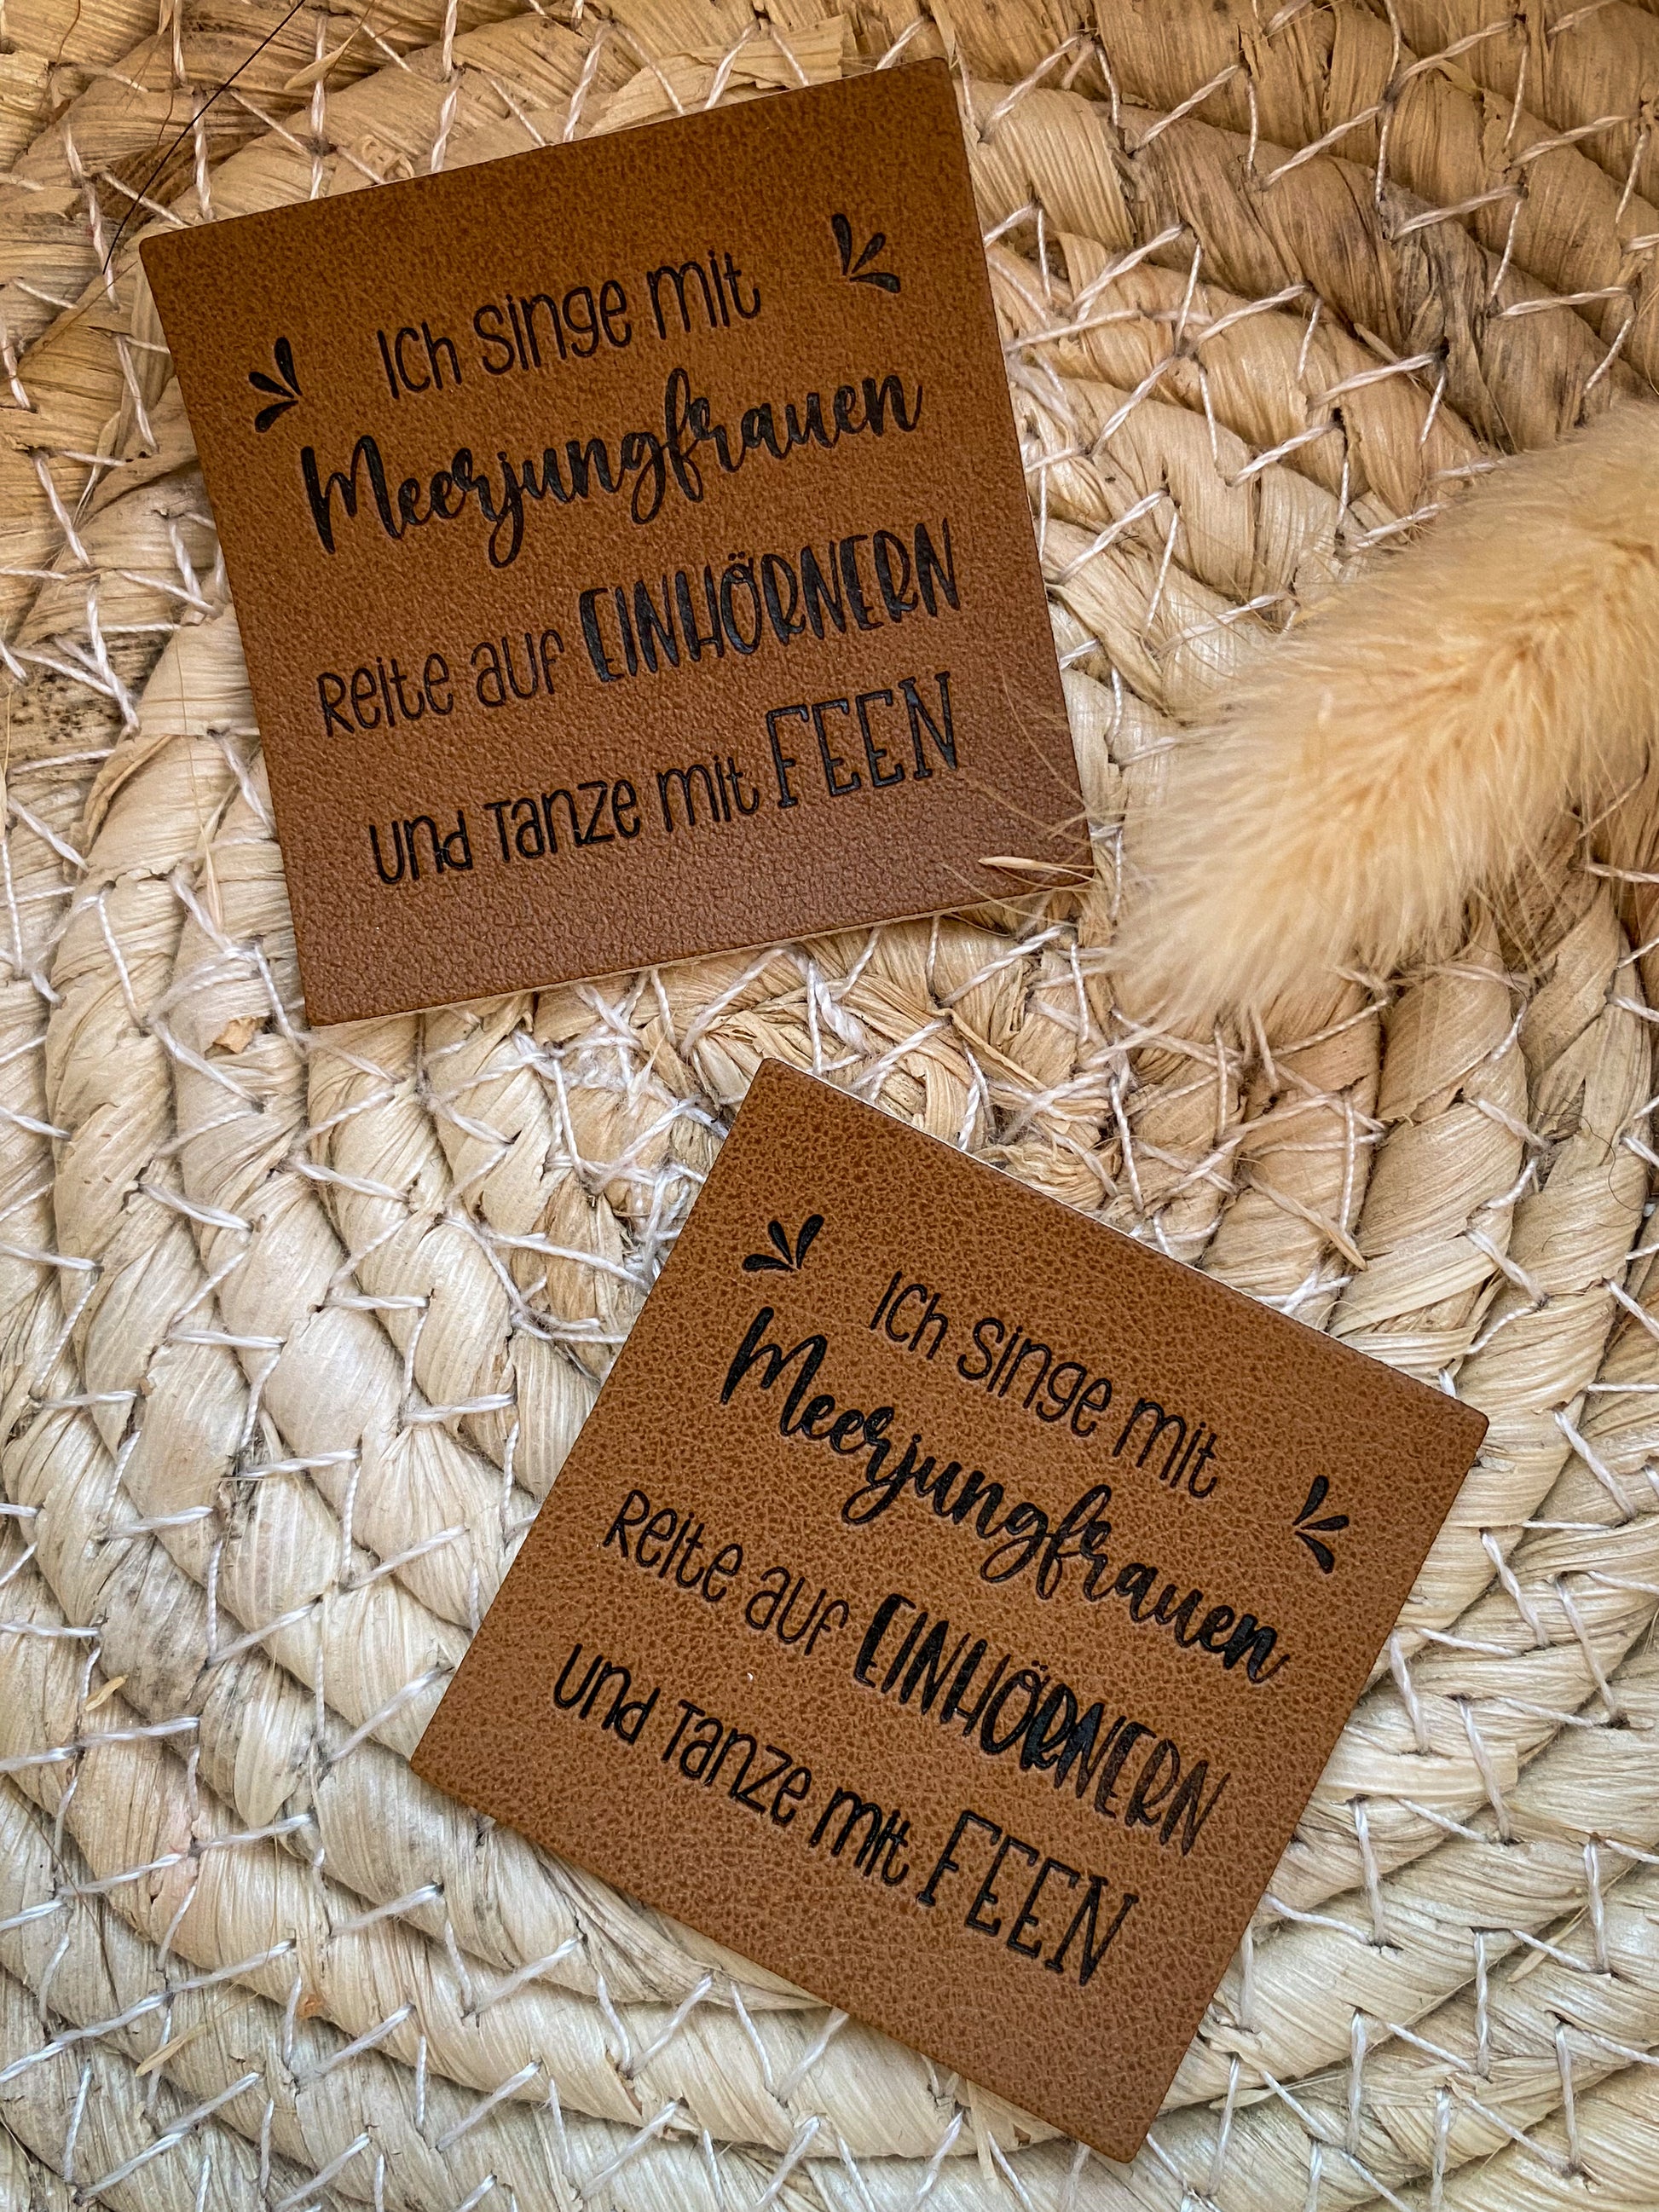 Ich singe mit
Meerjungfrauen
Reite auf EINHÖRNERN
und Tanze mit FEEN
Ich singe mit
Meerjungfrauen
Reite auf EINHÖRNERN
und Tanze mit FEEN